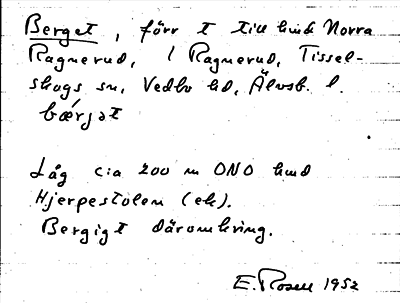 Berget, förr t till hmd Norra
Ragnerud, l Ragnerud, Tissel-
skogs sn, Vedbo hd, Älvsb. l.
bærjət
Låg c:a 200 m ONO hmd
Hjerpestolen (ek).
Bergigt däromkring.
E. Rosell 1952